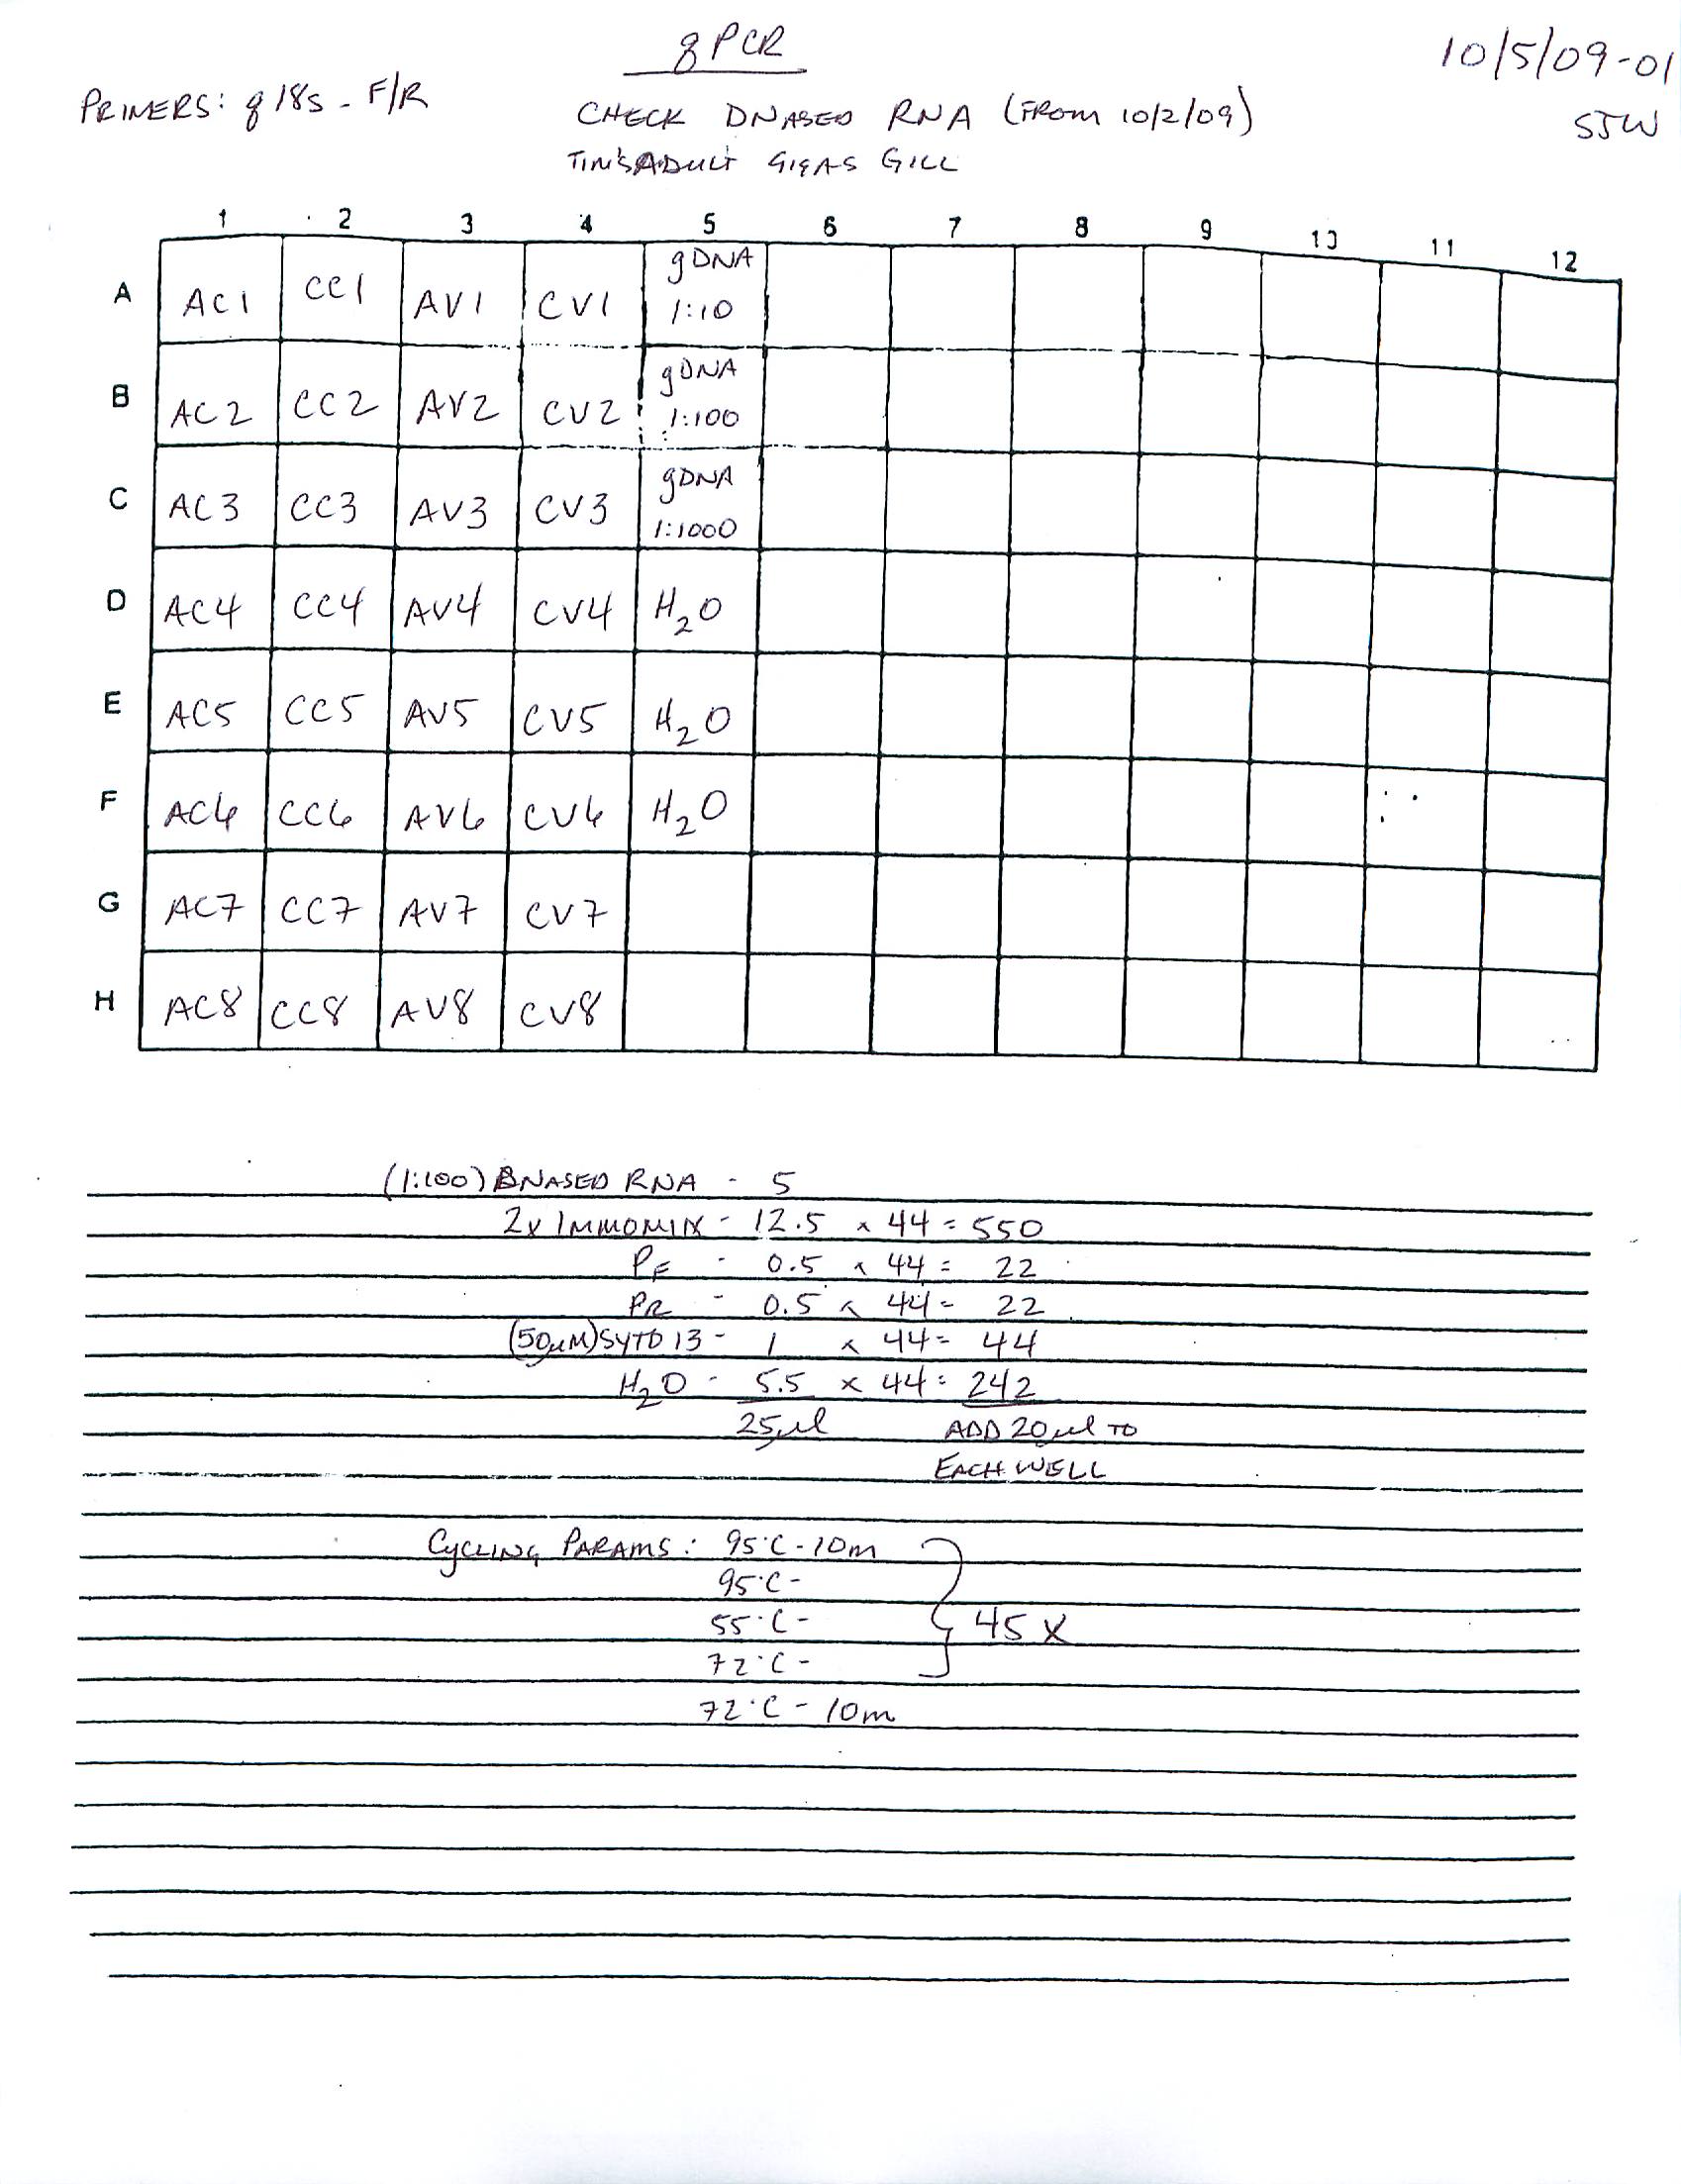 qPCR
10/5/09-01
PRIMERS: q18s - F/R
CHECK DNASED RNA (FROM 10/2/09)
SJW
TIM'S ADULT GIGAS GILL
1 2 3 4 5 6 7 8 9 10 11 12
A AC1 CC1 AV1 CV1 gDNA 1:10
B AC2 CC2 AV2 CV2 gDNA 1:100
C AC3 CC3 AV3 CV3 gDNA 1:1000
D AC4 CC4 AV4 CV4 H2O
E AC5 CC5 AV5 CV5 H2O
F AC6 CC6 AV6 CV6 H2O
G AC7 CC7 AV7 CV7
H AC8 CC8 AV8 CV8
(1:100) DNASED RNA - 5
2x IMMOMIX - 12.5 x 44 = 550
PF - 0.5 x 44 = 22
PR - 0.5 x 44 = 22
(50µM) SYTO 13 - 1 x 44 = 44
H2O - 5.5 x 44 = 242
25µl ADD 20µl TO
EACH WELL
CYCLING PARAMS: 95°C - 10m
95°C -
55°C - 45 X
72°C -
72°C - 10m